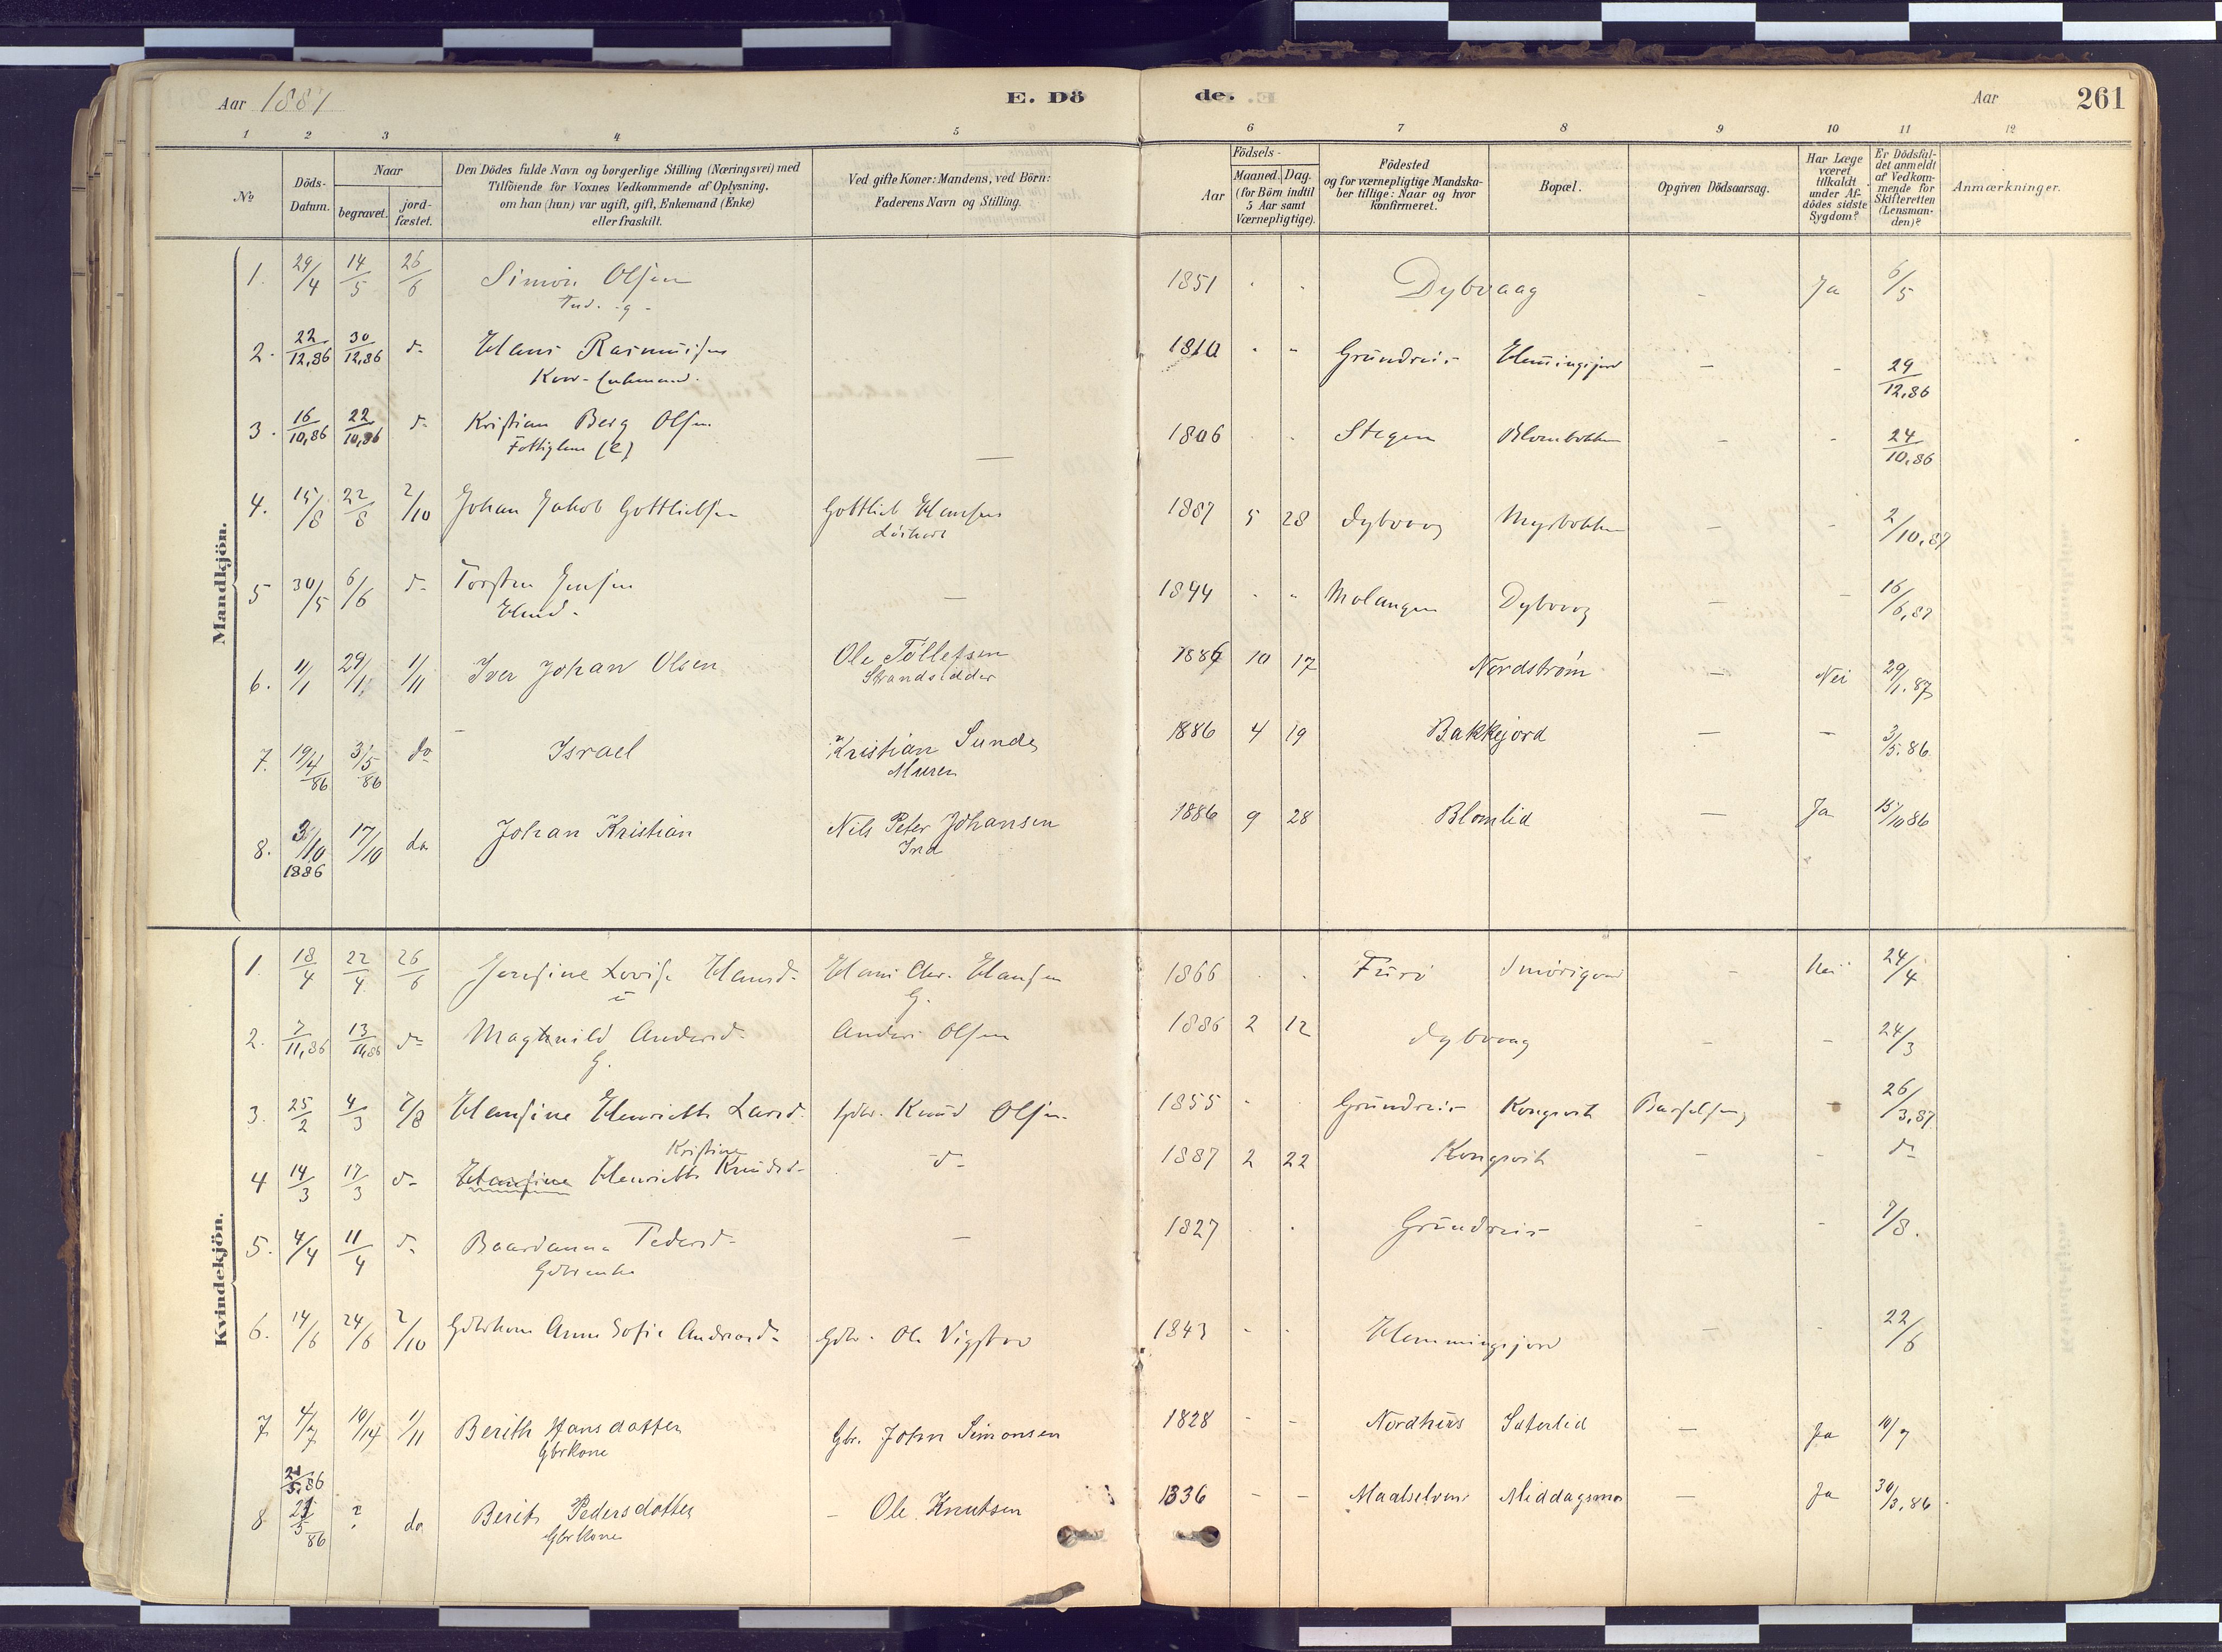 Aar 1887
E. Dö
de.
Aar
261
1 2 3 4 5 6 7 8 9 10 11 12
No
Döds-Datum.
Naar
begravet.
jord-fæstet.
Den Dödes fulde Navn og borgerlige Stilling (Næringsvei) med
Tilföiende for Voxnes Vedkommende af Oplysning,
om han (hun) var ugift, gift, Enkemand (Enke)
eller fraskilt.
Ved gifte Koner: Mandens, ved Börn:
Faderens Navn og Stilling.
Födsels-
Aar
Maaned. Dag.
(for Börn indtil
5 Aar samt
Værnepligtige).
Födested
og for værnepligtige Mandska-
ber tillige: Naar og hvor
konfirmeret.
Bopæl.
Opgiven Dödsaarsag.
Har Læge
været
tilkaldt
under Af-
dödes sidste
Sygdom?
Er Dödsfal-
det anmeldt
af Vedkom-
mende for
Skifteretten
(Lensman-
den)?
Anmærkninger.
Mandkjön.
1. 29/4 14/5 26/6 Simon Olsen 1851 Dybvaag Ja 6/5
Ind. g.
2. 22/12,86 30/12,86 do Hans Rasmussen 1810 Grundreis Hemingsjord 29/12,86
3. 16/10,86 22/10,86 do Kristian Berg Olsen 1806 Stegen Blombakken 24/10,86
Fattiglem (e)
4. 15/8 22/8 2/10 Johan Jakob Gottliebsen Gottlieb Hansen 1887 5 28 Dybvaag Myrbakken 2/10,87
5 30/5 6/6 do Torsten Jensen 1844 Malangen Dybvaag 16/6,87
6. 11/1 29/1 1/11 Iver Johan Olsen Ole Tollefsen 1886 10 17 Nordstrøm Nei 29/1.87
Strandsidder
7. 19/4/86 3/5/86 do Israel Kristian Sunde 1886 4 19 Bakkejord 3/5.86
Maren
8. 3/10 1886 17/10 do Johan Kristian Nils Peter Johansen 1886 9 28 Blomlid Ja 15/10 86
Ina
Kvindekjön.
1. 18/4 22/4 26/6 Josefine Lovise Hansd. Hans Chr. Hansen 1866 Furö Nei 24/4
G.
2. 7/11,86 13/11,86 do Maghnild Andersd. Anders Olsen 1886 2 12 Dybvaag 24/3
G.
3. 25/2 4/3 7/8 Hansine Henriette Larsd. Gbr. Knud Olsen 1855 Grundreis Kongsvik Barselseng 26/3,87
4 14/3 17/3 do Hansine Henriette Kristine Knudsd. do 1887 2 22 Kongsvik do
5. 4/4 11/4 do Baardanna Pedersd. 1827 Grundreis 7/8.
Gbrenke
6. 14/6 24/6 2/10 Gbrkone Anne Sofie Andreasd. Gbr. Ole Vigstad 1843 Hemmingsjord 22/6
7 4/7 10/14 1/11 Berith Hansdatter Gbr. John Simonsen 1828 Nordhus Säterlid Ja 10/7
Gbrkone
8 23/5/86 ? do Berit Pedersdatter Ole Knutsen 1836 Maalselven Middagsmo Ja 30/3,86
Gbrkone